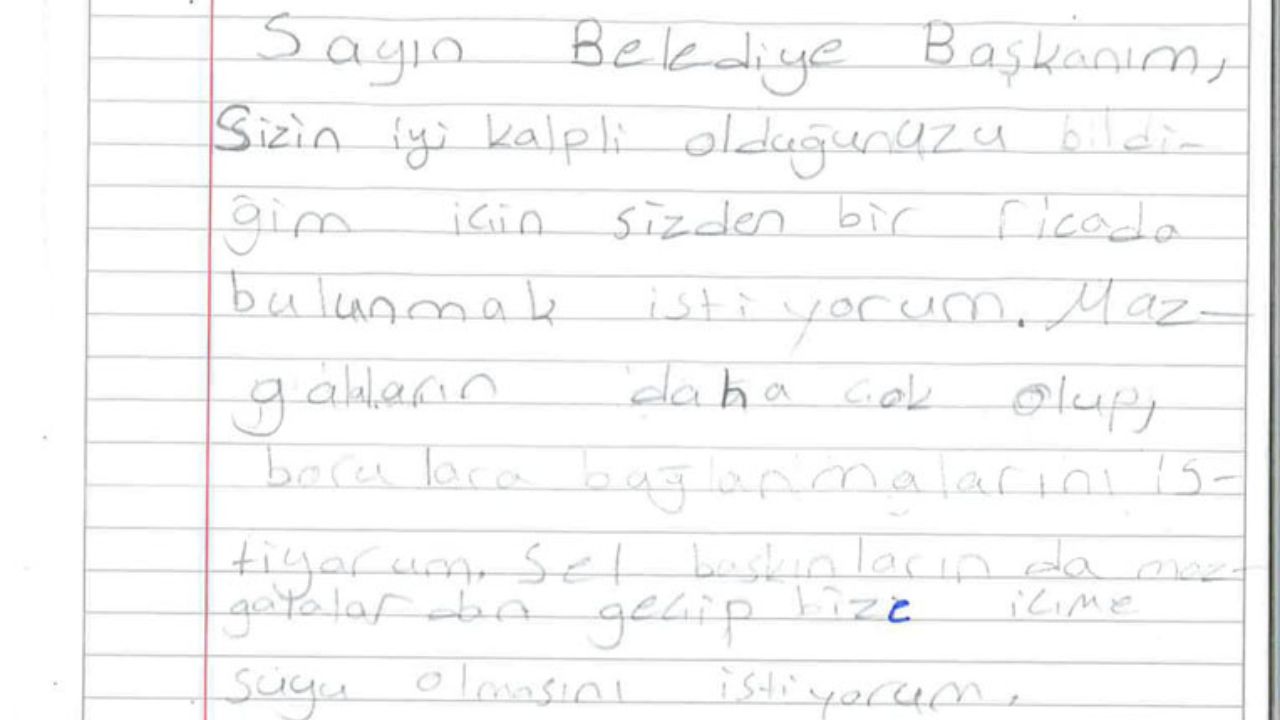 Sayın Belediye Başkanım,
Sizin iyi kalpli olduğunuzu bildi-
ğim için sizden bir ricada
bulunmak istiyorum. Maz-
galların daha çok olup,
borulara bağlanmalarını is-
tiyorum. Sel baskınların da maz-
galalardan geçip bize içme
suyu olmasını istiyorum.